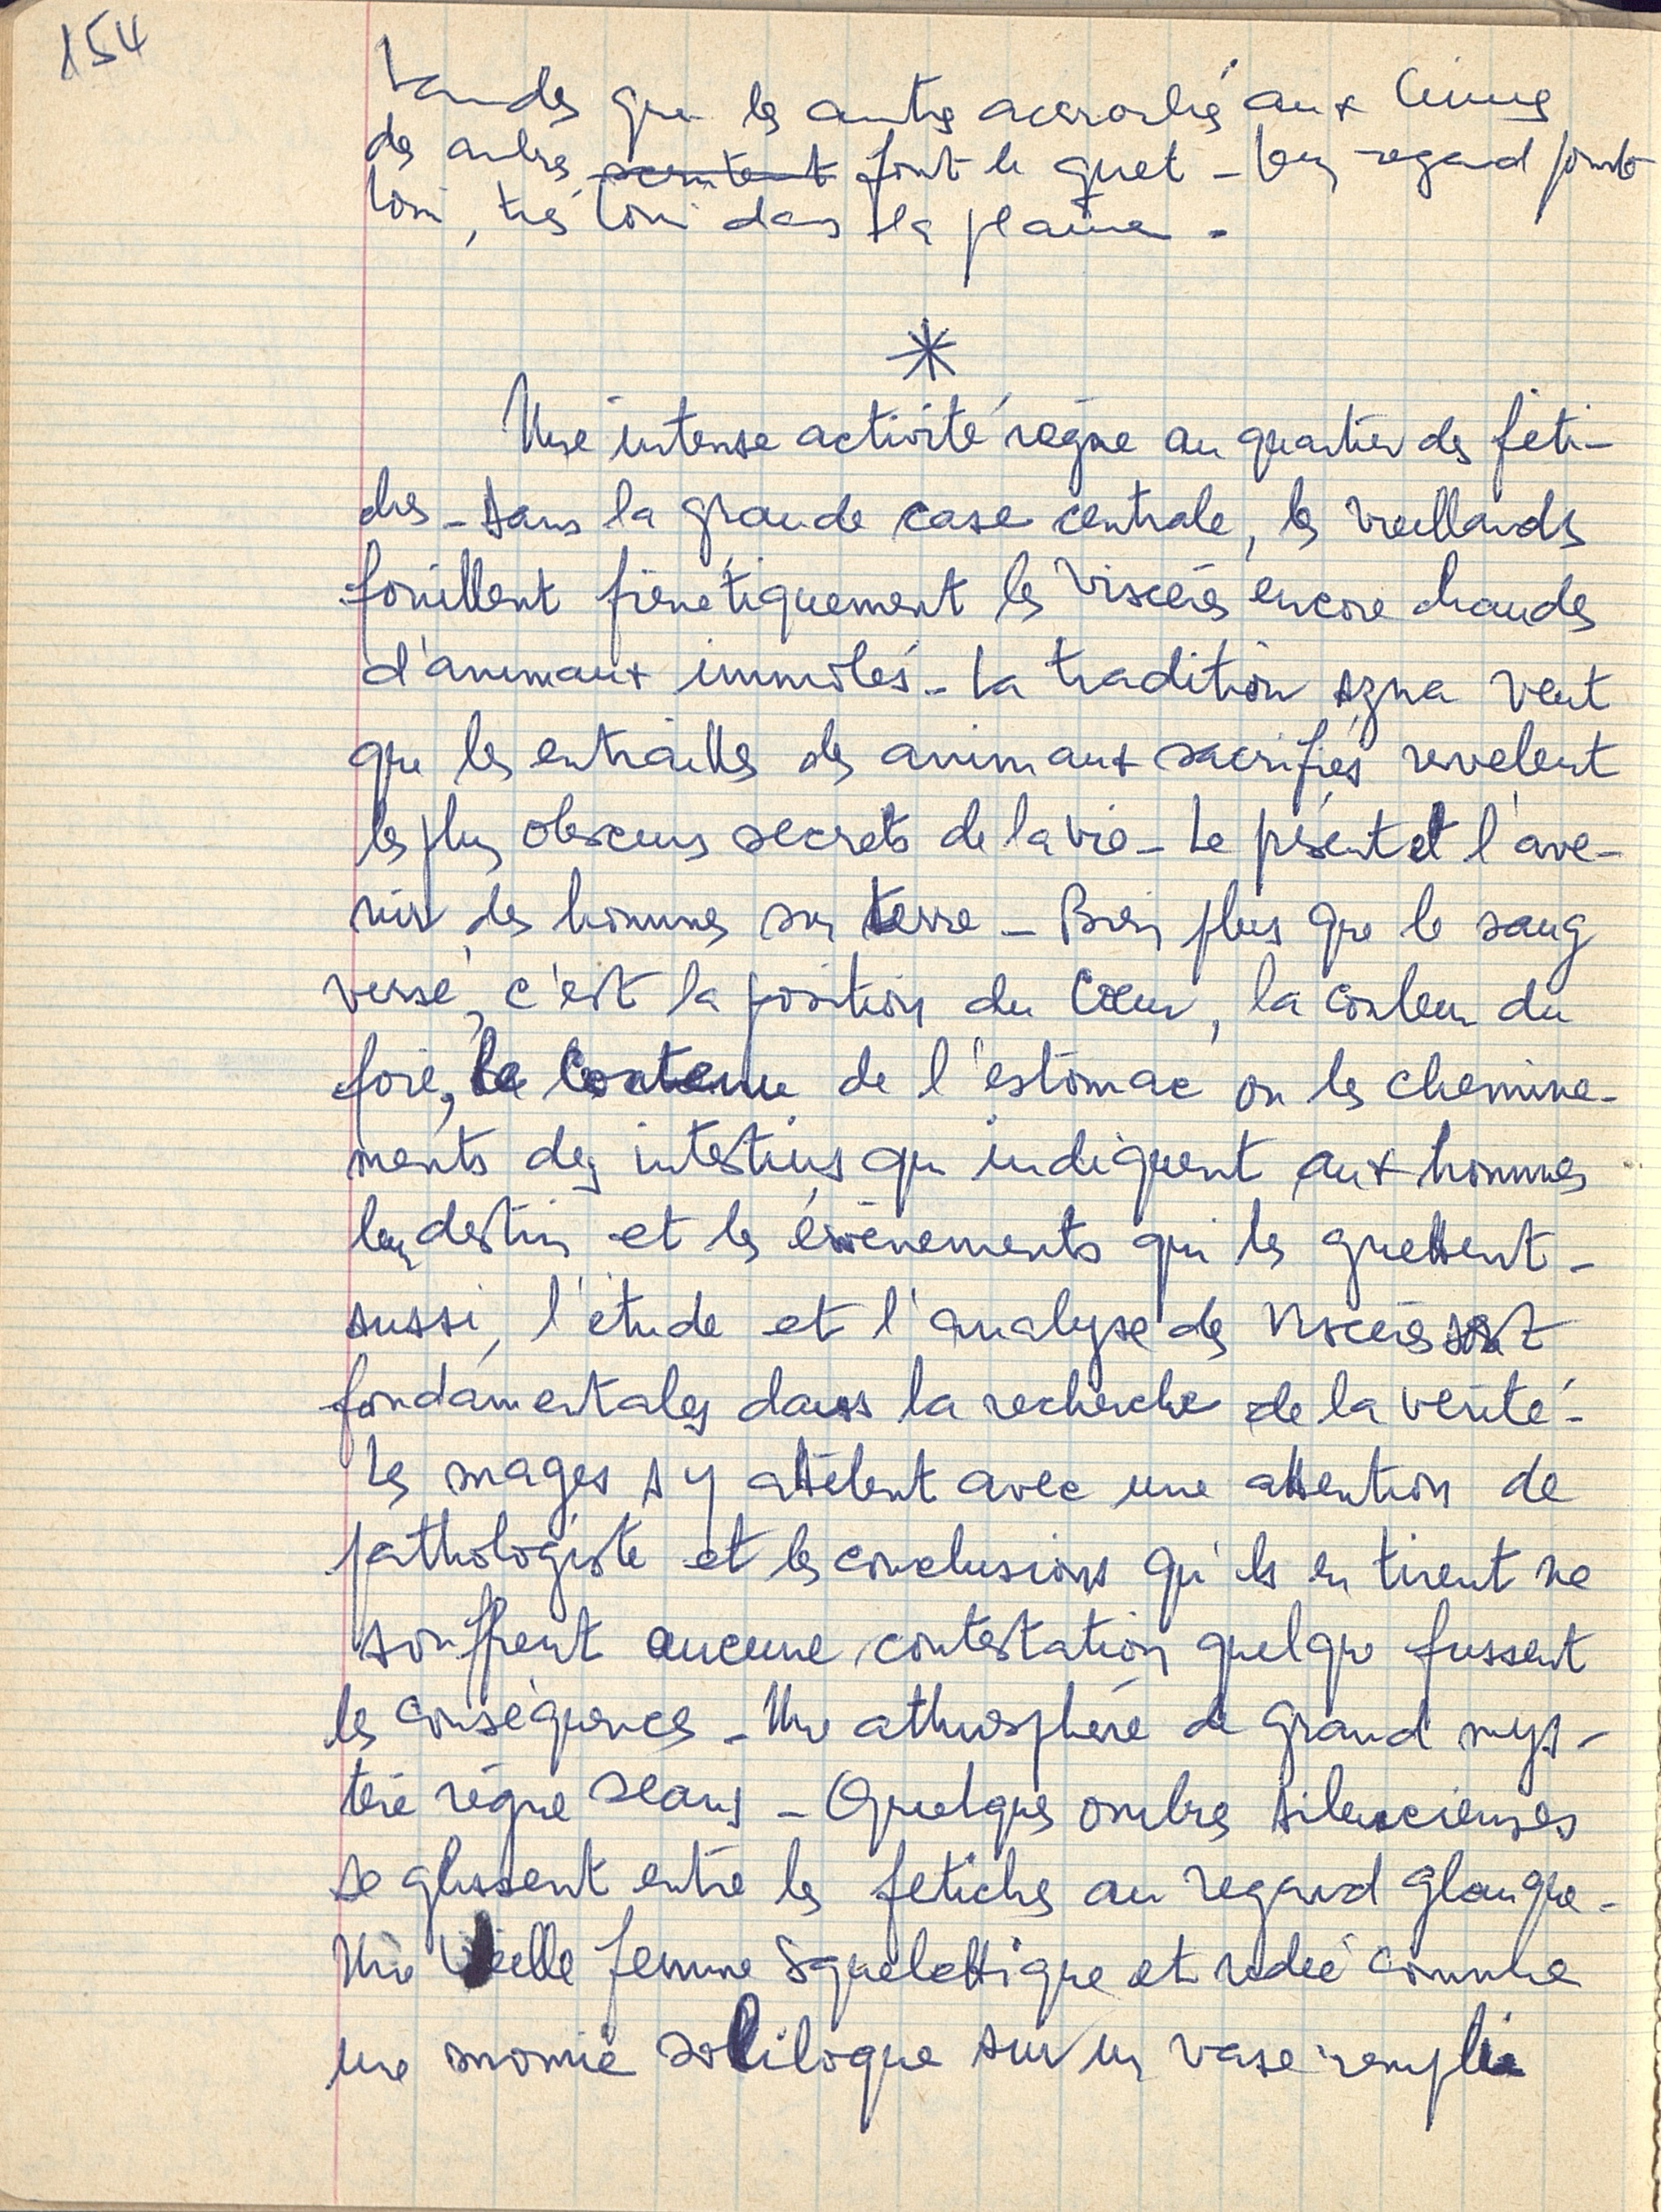 154
tandis que les autres accrochés aux cimes
des arbres, scrutent font le guet - leur regard porte
loin, très loin dans la plaine.
*
Une intense activité règne au quartier des féti-
ches - Dans la grande case centrale, les vieillards
fouillent frénétiquement les viscères encore chaudes
d'animaux immolés - La tradition Azna veut
que les entrailles des animaux sacrifiés revèlent
les plus obscurs secrets de la vie - Le présent et l'ave-
nir des hommes sur terre - Bien plus que le sang
versé, c'est la position du Cœur, la couleur du
foie, le contenu de l'estomac ou les chemine-
ments des intestins qui indiquent aux hommes
leur destin et les évènements qui les guettent -
Aussi, l'étude et l'analyse des viscères sont
fondamentales dans la recherche de la vérité -
Les mages s'y attèlent avec une attention de
pathologiste et les conclusions qu'ils en tirent ne
souffrent aucune contestation quelque fussent
les conséquences - Une athmosphère de grand mys-
tère règne céans - Quelques ombres silencieuses
se glissent entre les fetiches au regard glauque -
Une vieille femme squelettique et ridée comme
une momie soliloque sur un vase remplie